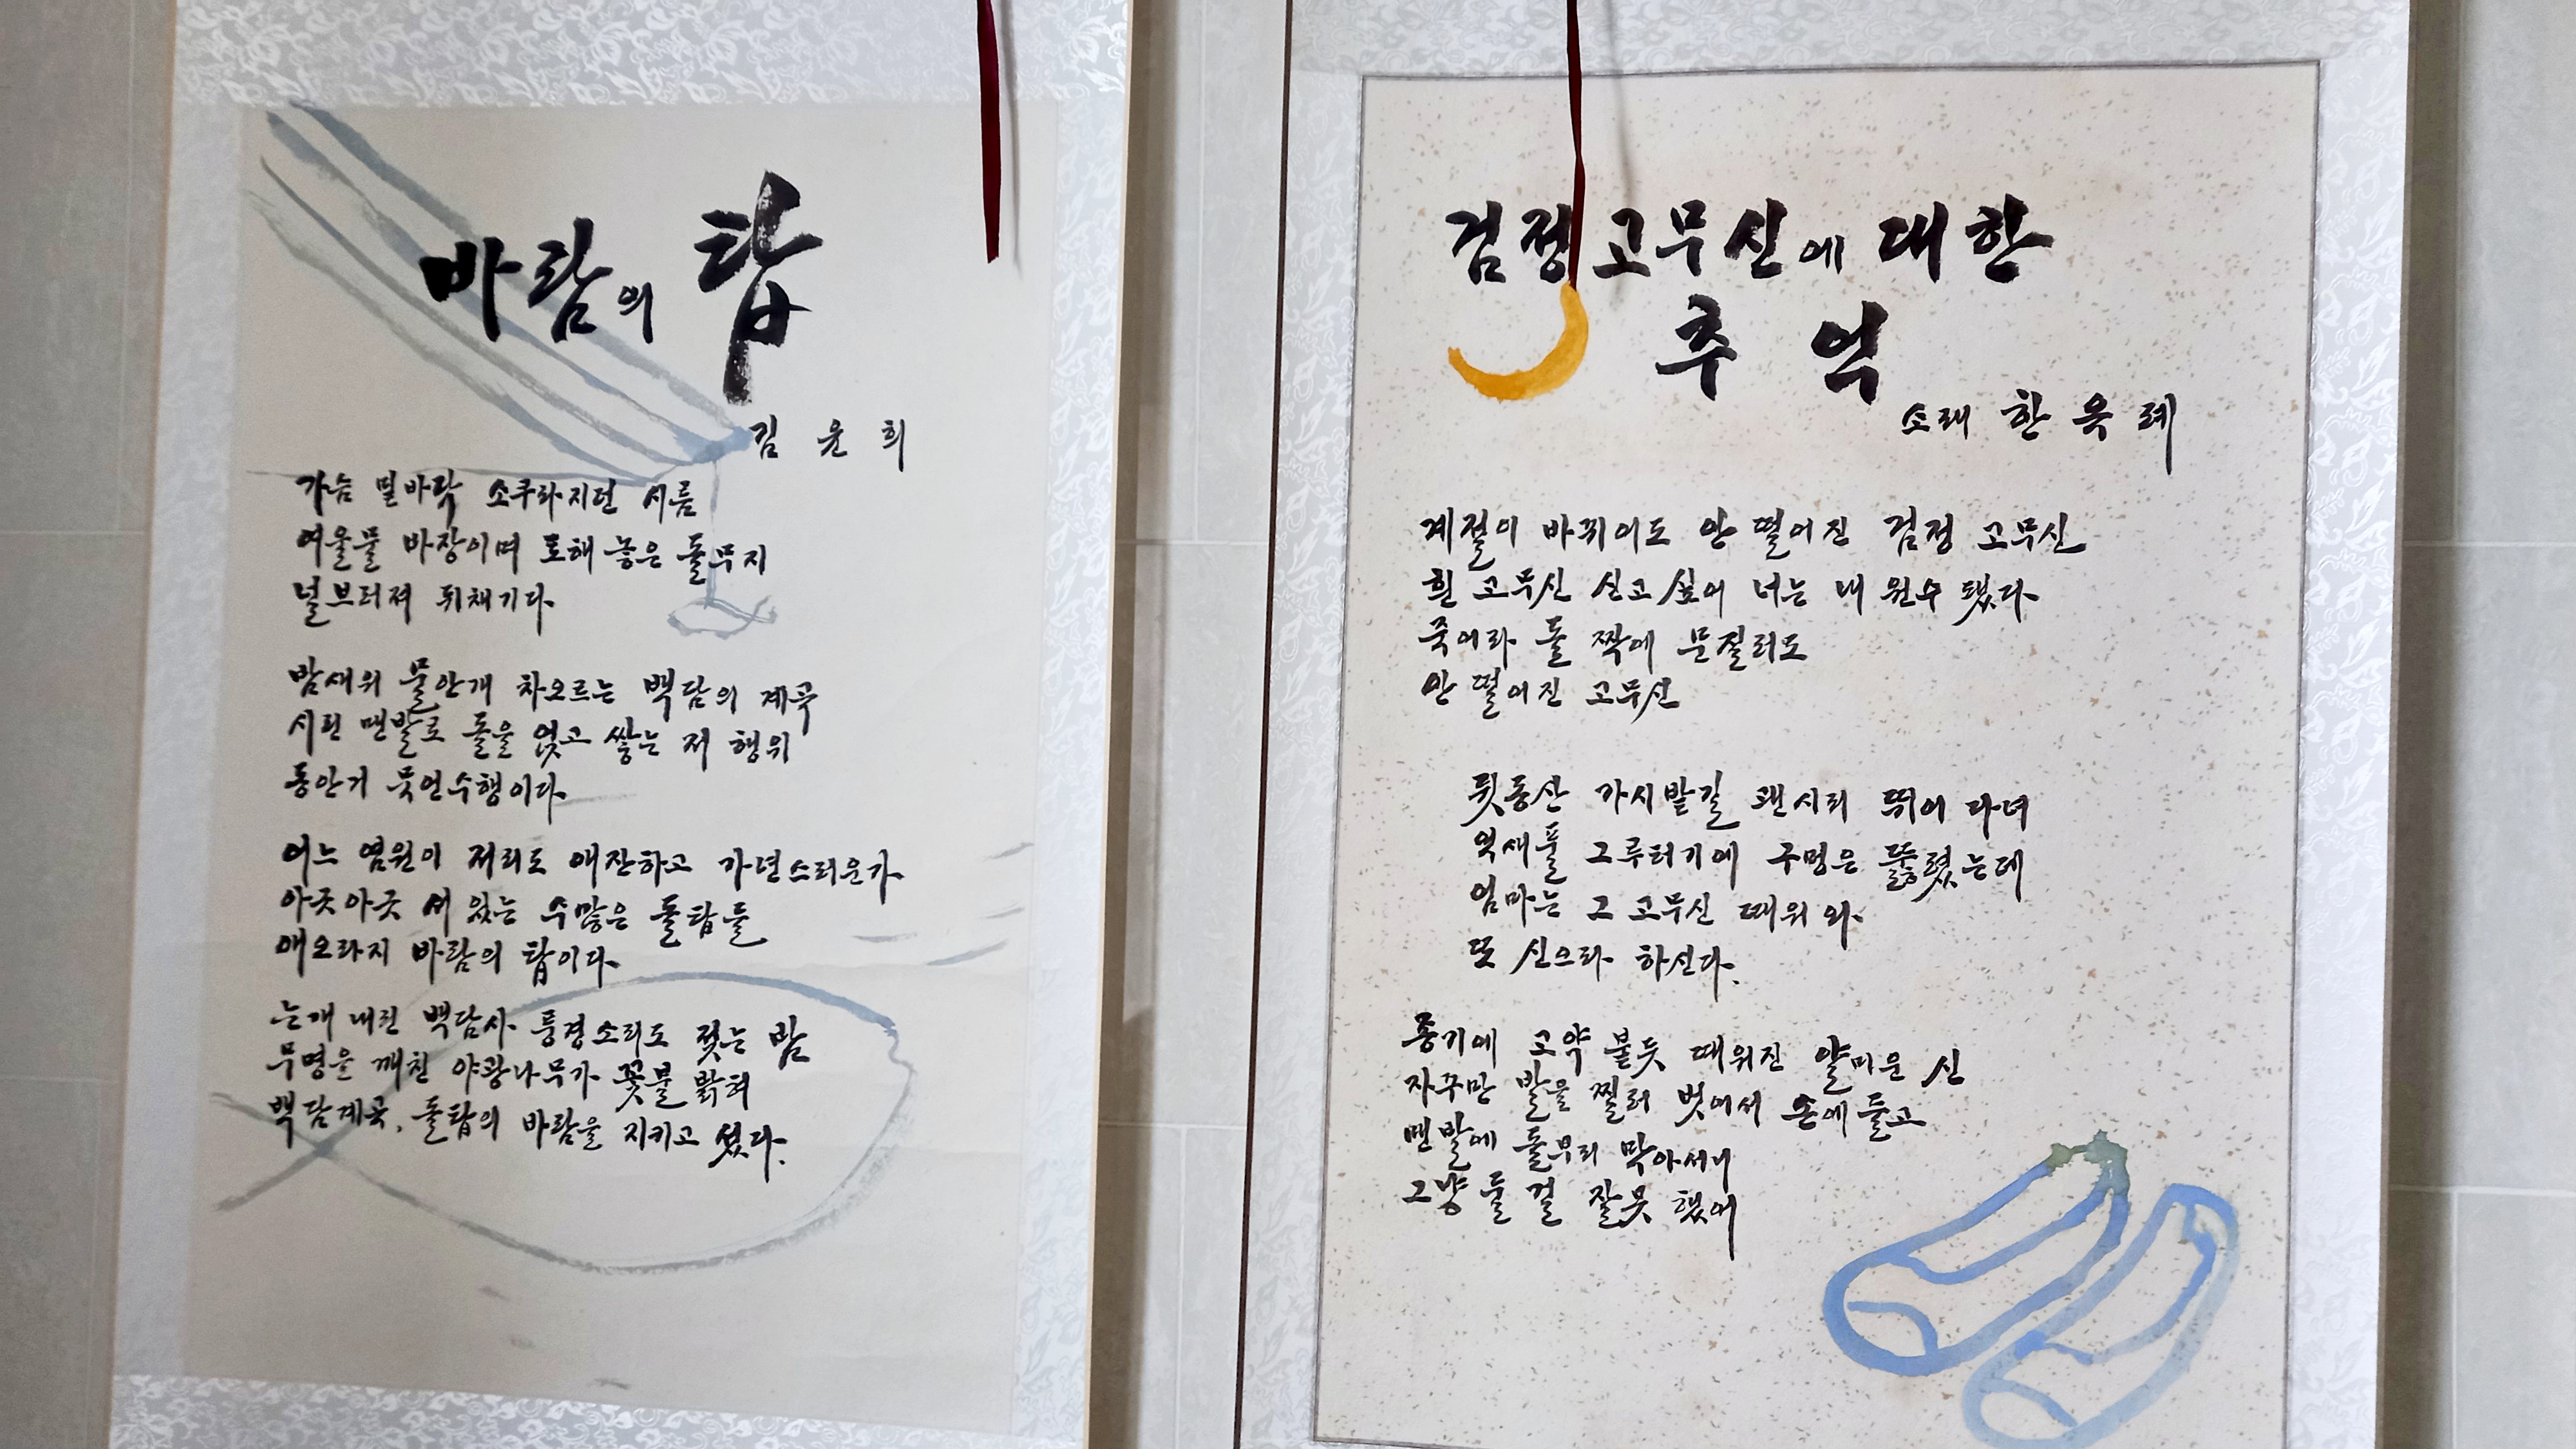 바람의 탑
김윤희
가슴 밑바닥 소쿠라지던 시름
여울물 바장이며 토해 놓은 돌무지
널브러져 뒤채기다.
밤새워 물안개 차오르는 백담의 계곡
시린 맨발로 돌을 얹고 쌓는 저 행위
동안거 묵언수행이다.
어느 염원이 저리도 애잔하고 가년스러운가
아긋아긋 서 있는 수많은 돌탑들
애오라지 바람의 탑이다.
는개 내린 백담사 풍경소리도 젖는 밤
무명을 깨친 야광나무가 꽃불 밝혀
백담계곡, 돌탑의 바람을 지키고 섰다.
검정 고무신에 대한
추억
소래 한옥례
계절이 바뀌어도 안 떨어진 검정 고무신
흰 고무신 신고 싶어 너는 내 원수 됐다
죽어라 돌 짝에 문질러도
안 떨어진 고무신
뒷동산 가시밭길 괜시리 뛰어 다녀
억새풀 그루터기에 구멍은 뚫렸는데
엄마는 그 고무신 때워 와
또 신으라 하신다.
종기에 고약 붙듯 때워진 얄미운 신
자꾸만 발을 찔러 벗어서 손에 들고
맨발에 돌부리 막아서니
그냥 둘 걸 잘못 했어